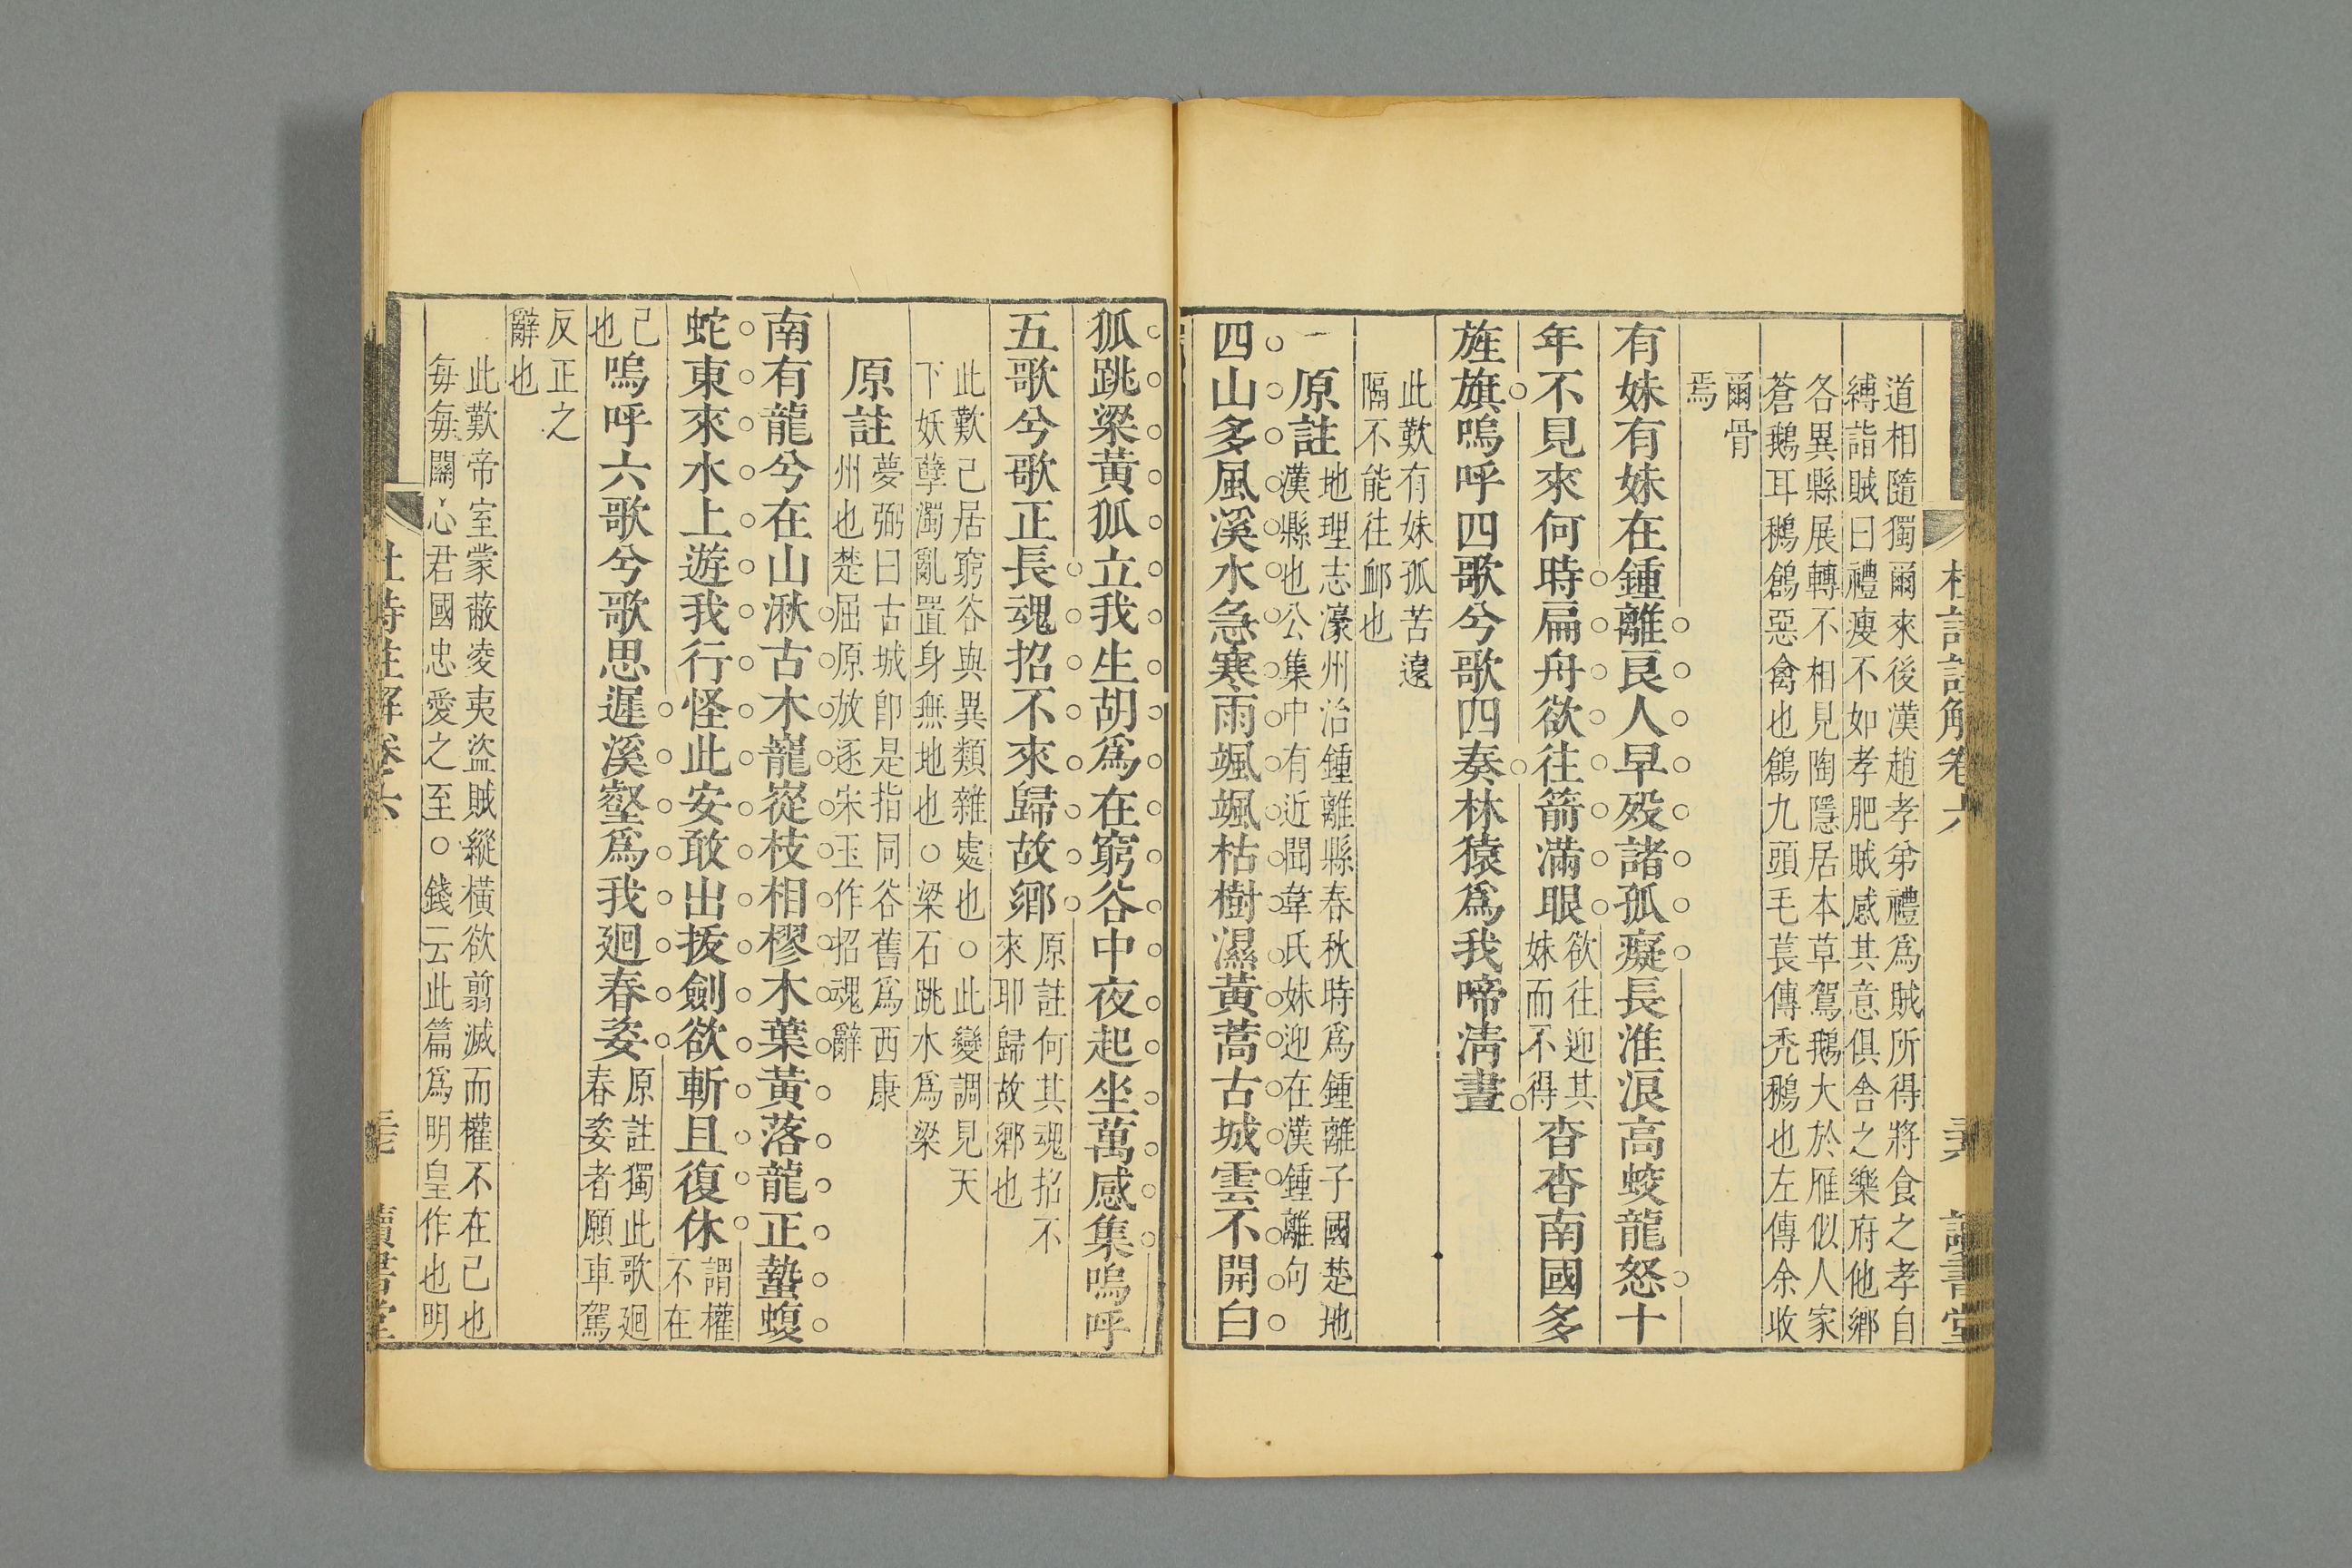 道相隨獨爾來後漢趙孝弟禮爲賊所得將食之孝自
縛詣賊曰禮瘦不如孝肥賊感其意俱舎之樂府他鄉
各異縣展轉不相見陶隱居本草駕鵝大於雁似人家
蒼鵝耳鶖鶬惡禽也鶬九頭毛萇傳禿鶖也左傳余收
爾骨
焉
有妹有妹在鍾離良人早歿諸孤癡長淮浪高蛟龍怒十
年不見來何時扁舟欲往箭滿眼
欲往迎其
妹而不得
杳杳南國多
旌旗嗚呼四歌兮歌四奏林猿爲我啼淸晝
此歎有妹孤苦遠
隔不能往䘏也
原註
地理志濠州治鍾離縣春秋時爲鍾離子國楚地
漢縣也公集中有近聞韋氏妹迎在漢鍾離句
四山多風溪水急寒雨颯颯枯樹濕黃蒿古城雲不開白
狐跳梁黃狐立我生胡爲在窮谷中夜起坐萬感集嗚呼
五歌兮歌正長魂招不來歸故鄉
原註何其魂招不
來耶歸故鄉也
此歎己居窮谷與異類雜處也○此變調見天
下妖孽濁亂置身無地也○梁石跳水爲梁
原註
夢弼曰古城卽是指同谷舊爲西康
州也楚屈原放逐宋玉作招魂辭
南有龍兮在山湫古木巃嵸枝相樛木葉黃落龍正蟄蝮
蛇東來水上遊我行怪此安敢出拔劍欲斬且復休
謂權
不在
己
也
嗚呼六歌兮歌思遲溪壑爲我迴春姿
原註獨此歌迴
春姿者願車駕
反正之
辭也
此歎帝室蒙蔽凌夷盜賊縱橫欲翦滅而權不在己也
每每關心君國忠愛之至○錢云此篇爲明皇作也明